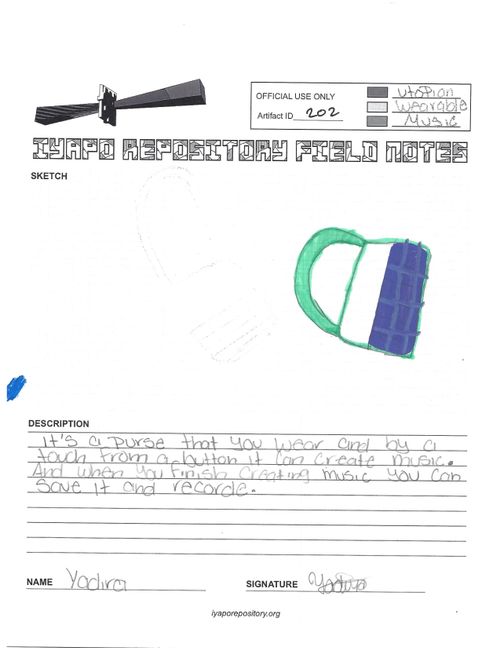 OFFICIAL USE ONLY
Artifact ID 202
utopian
Wearable
Music
IYAPO REPOSITORY FIELD NOTES
SKETCH
DESCRIPTION
It's a purse that you wear and by a
touch from a button it can create music.
And when you finish creating music you can
save it and recorde.
NAME Yadira
SIGNATURE
iyaporepository.org